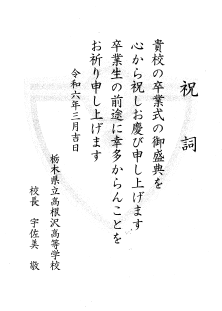 祝詞
貴校の卒業式の御盛典を
心から祝しお慶び申し上げます
卒業生の前途に幸多からんことを
お祈り申し上げます
令和六年三月吉日
栃木県立高根沢高等学校
校長 宇佐美 敬